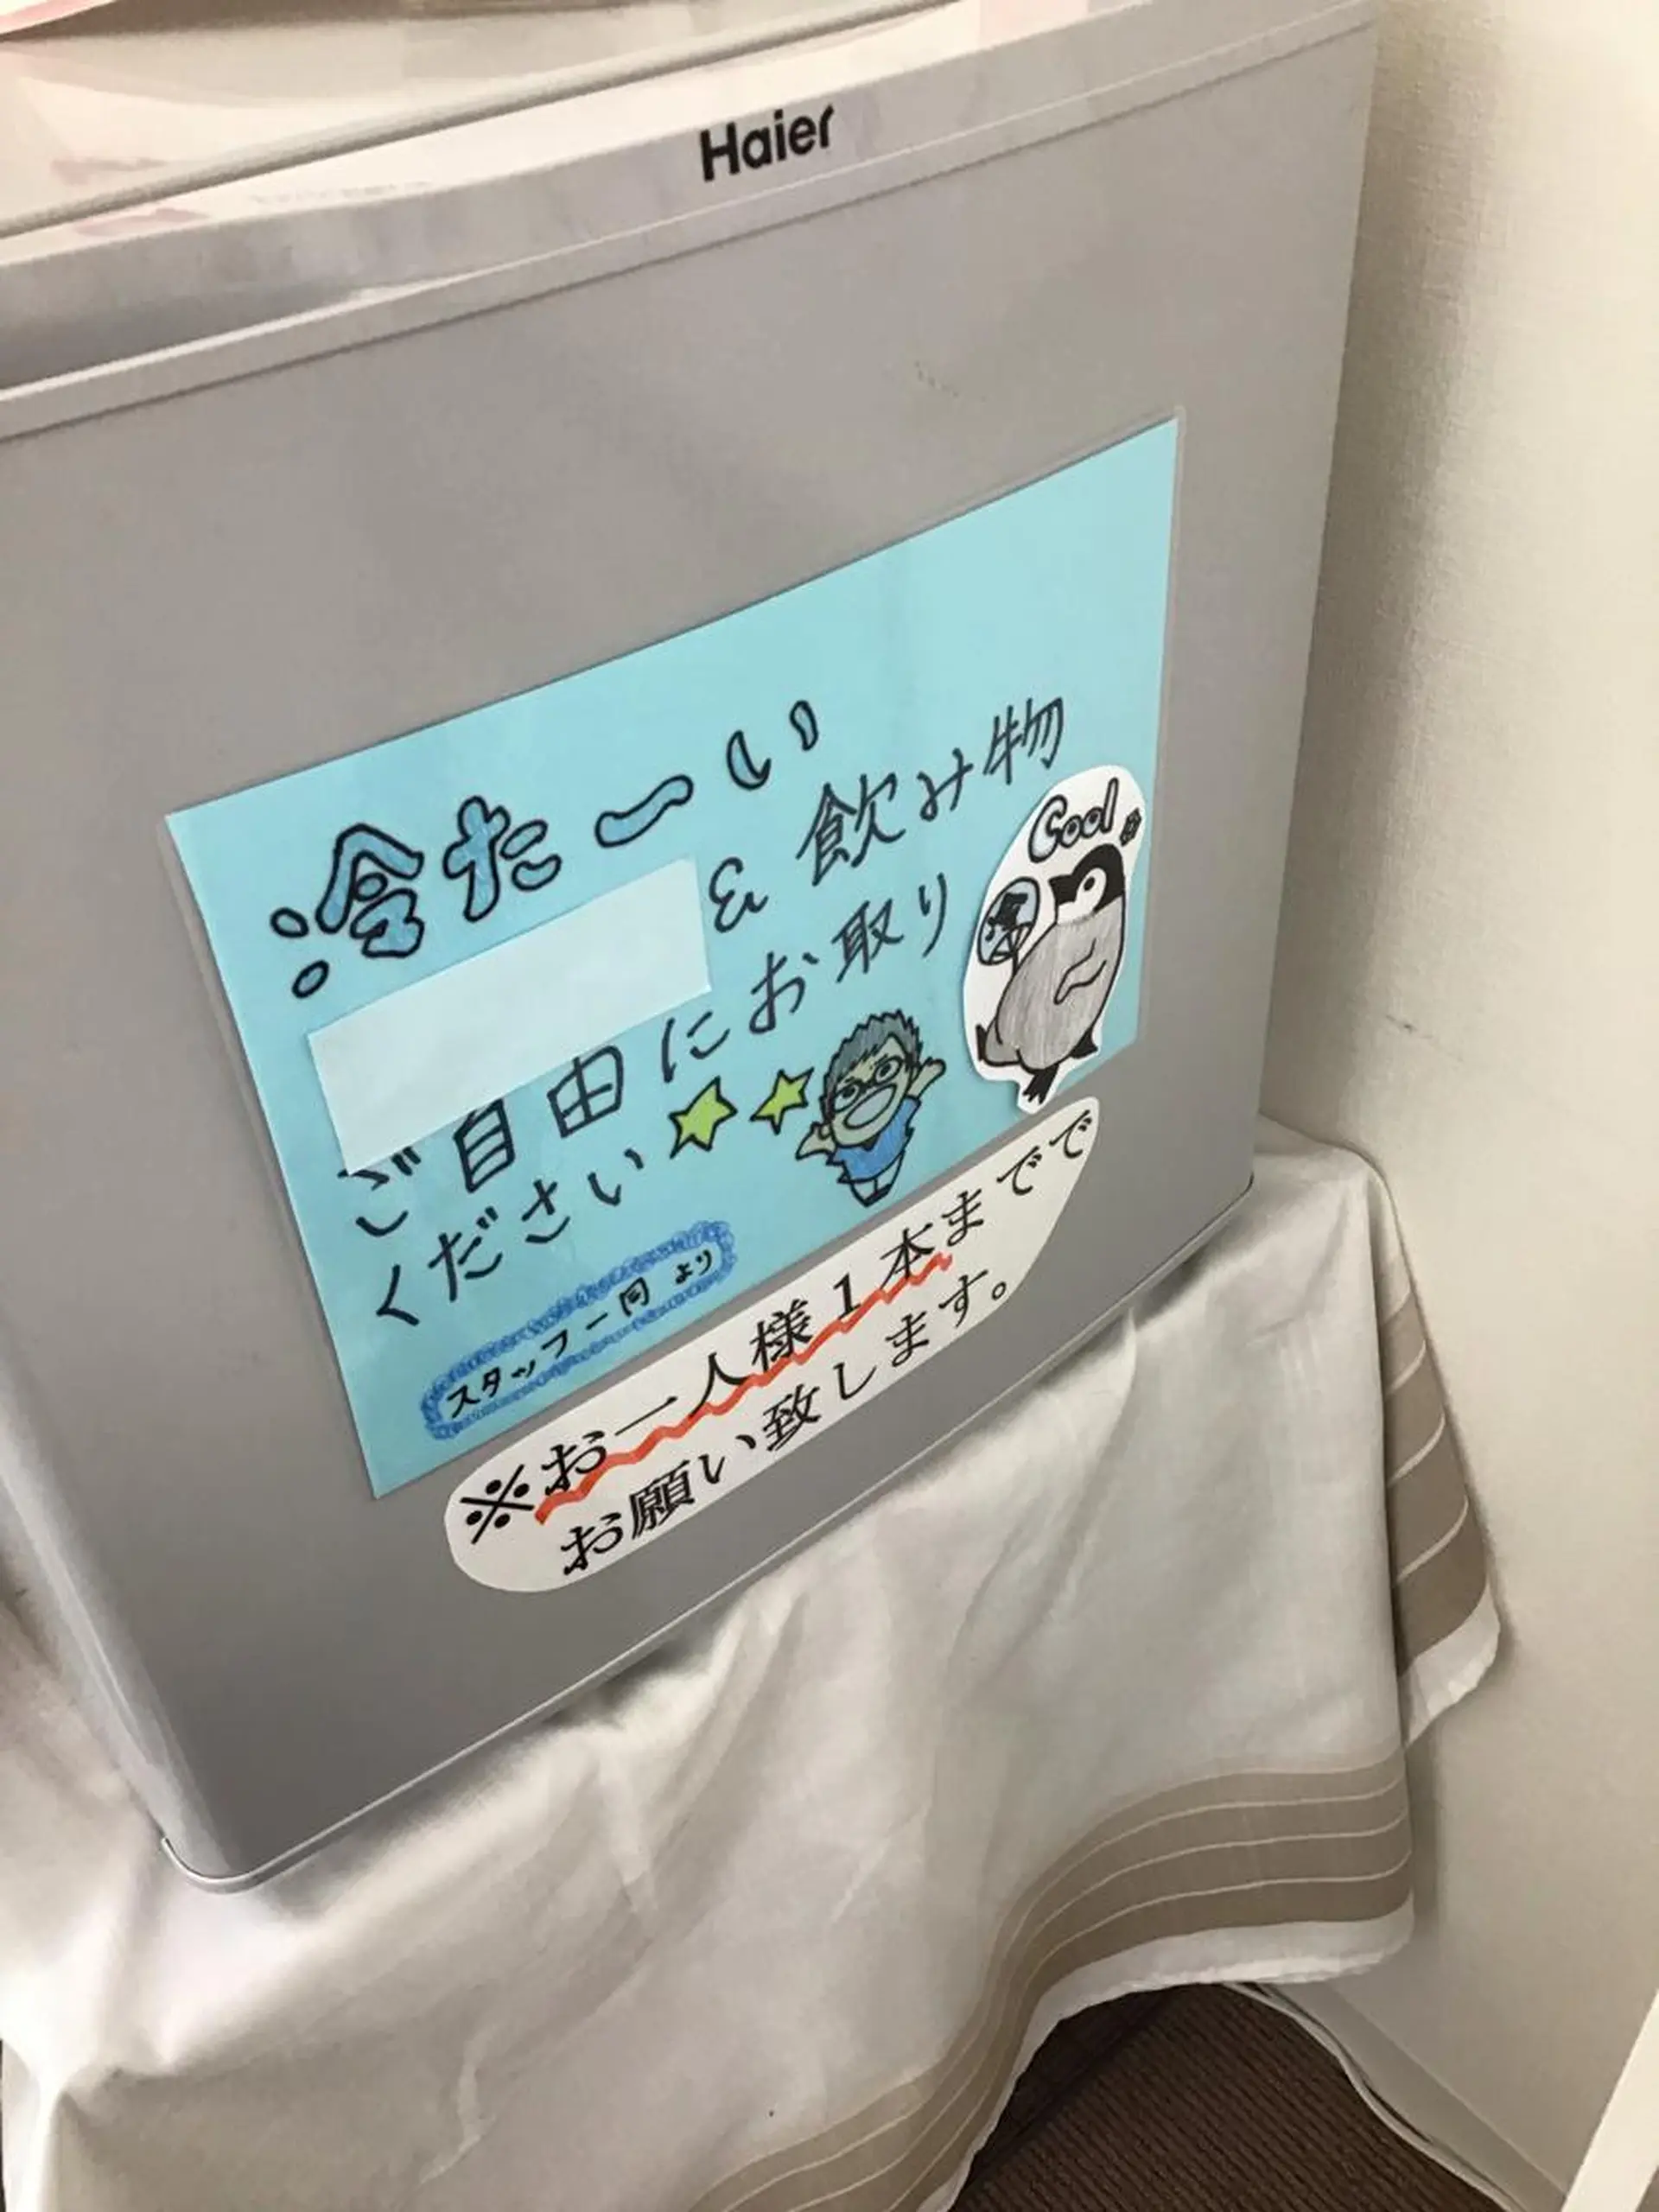 Haier
冷たーい
& 飲み物
ご自由にお取り
ください
スタッフ一同より
Cool
冷
※お一人様1本までで
お願い致します。